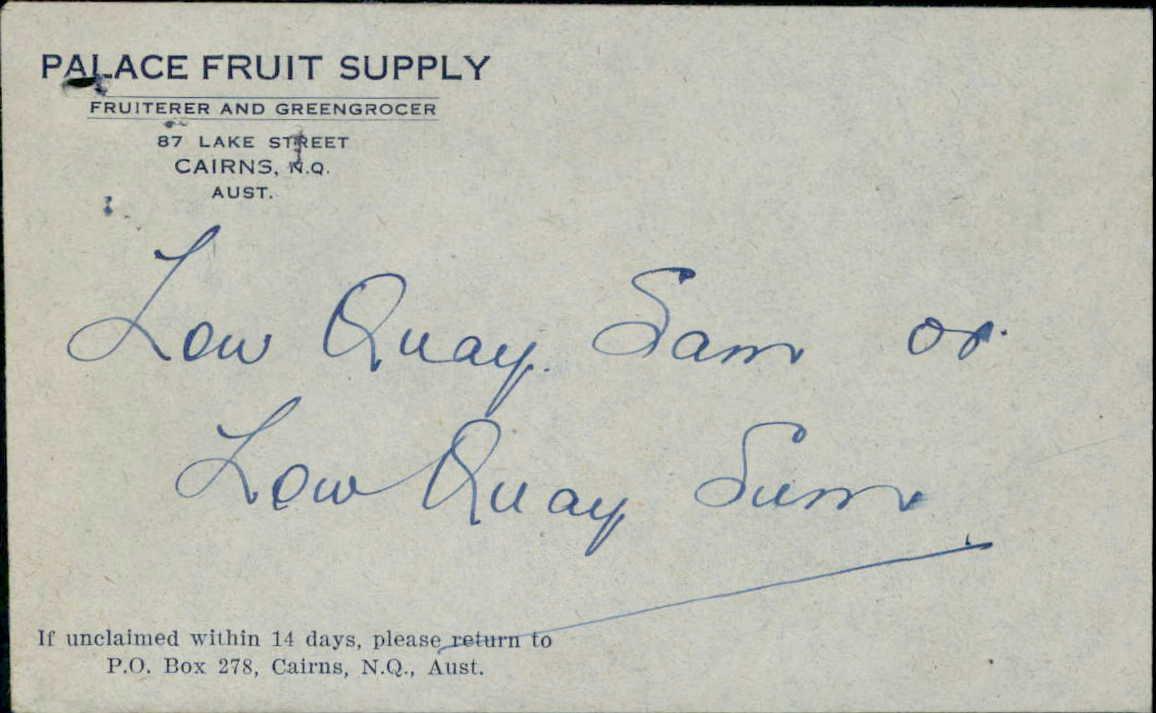 PALACE FRUIT SUPPLY
FRUITERER AND GREENGROCER
87 LAKE STREET
CAIRNS, N.Q.
AUST.
Low Quay. Sam or
Low Quay Sum
If unclaimed within 14 days, please return to
P.O. Box 278, Cairns, N.Q., Aust.